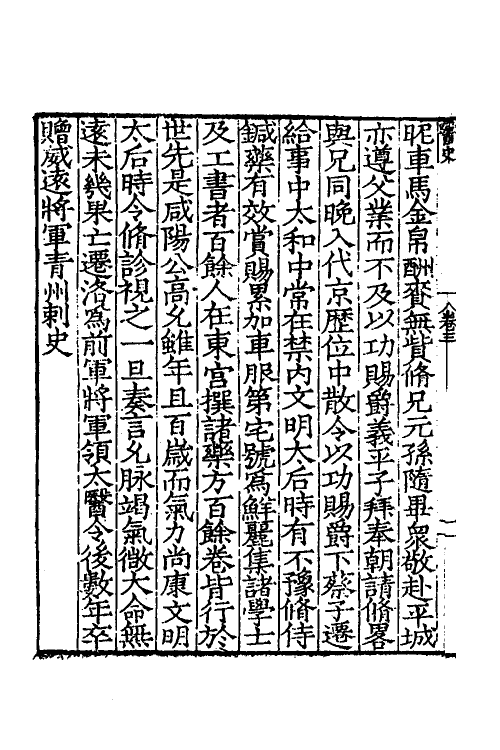 醫史
卷三
昵車馬金帛酬賚無貲脩兄元孫隨畢衆敬赴平城
亦遵父業而不及以功賜爵義平子拜奉朝請脩畧
與兄同晚入代京歷位中散令以功賜爵下蔡子遷
給事中太和中常在禁内文明太后時有不豫脩侍
鍼藥有效賞賜累加車服第宅號爲鮮麗集諸學士
及工書者百餘人在東宮撰諸藥方百餘卷皆行於
世先是咸陽公高允雖年且百歲而氣力尚康文明
太后時令脩診視之一旦奏言允脉竭氣微大命無
遠未幾果亡遷洛爲前軍將軍領太醫令後數年卒
贈威遠將軍青州刺史